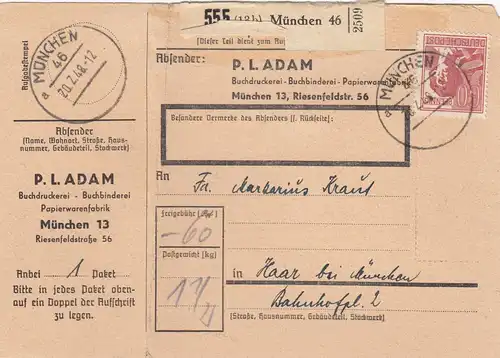 555 (13b) München 46
2509
(Dieser Teil dient zum Auf
Aufgabestempel
MÜNCHEN
46
20.7.48.-12
a
Absender
(Name, Wohnort, Straße, Haus-
nummer, Gebäudeteil, Stockwerk)
P. L. ADAM
Buchdruckerei - Buchbinderei
Papierwarenfabrik
München 13
Riesenfeldstraße 56
Anbei 1 Paket
Bitte in jedes Paket oben-
auf ein Doppel der Aufschrift
zu legen.
Absender:
P. L. ADAM
Buchdruckerei - Buchbinderei - Papierwarenfabrik
München 13, Riesenfeldstr. 56
DEUTSCHE POST
MÜNCHEN
a
Besondere Vermerke des Absenders (s. Rückseite):
An Fa. Markarius Kraut
Freigebühr (RM)
-60
Postgewicht (kg)
in Haar bei München
Bahnhofpl. 2
(Straße, Hausnummer, Gebäudeteil, Stockwerk)